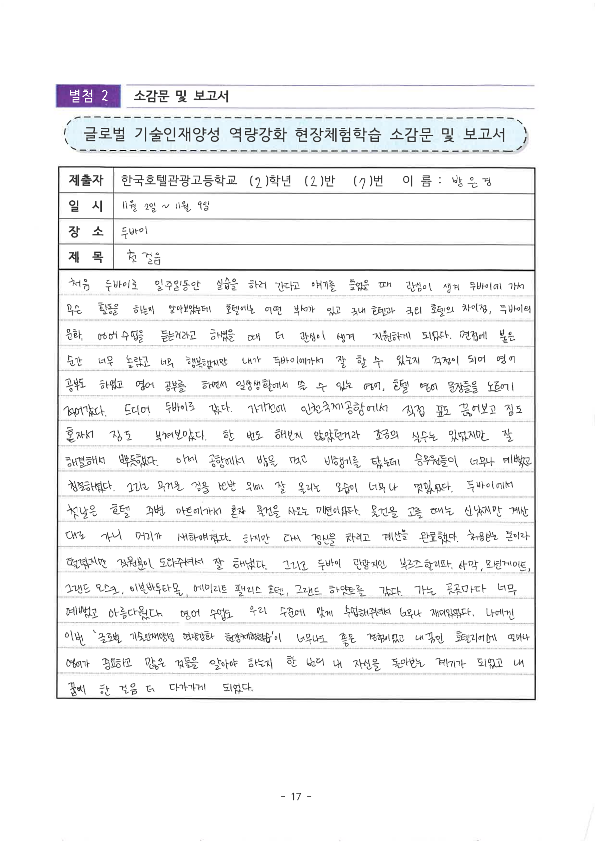 별첨 2 소감문 및 보고서
글로벌 기술인재양성 역량강화 현장체험학습 소감문 및 보고서
제출자 한국호텔관광고등학교 (2)학년 (2)반 (7)번 이 름 : 방은경
일 시 11월 2일 ~ 11월 9일
장 소 두바이
제 목 첫 걸음
처음 두바이로 일주일동안 실습을 하러 간다고 얘기를 들었을 때 관심이 생겨 두바이에 가서
무슨 활동을 하는지 알아보았는데 호텔에는 어떤 부서가 있고 국내 호텔과 국외 호텔의 차이점, 두바이의
문화, 영어수업을 듣는거라고 하셨을 때 더 관심이 생겨 지원하게 되었다. 면접에 붙은
순간 너무 놀랐고 너무 행복했지만 내가 두바이에가서 잘 할 수 있는지 걱정이 되어 영어
공부도 하였고 영어 공부를 하면서 일상생활에서 쓸 수 있는 영어, 호텔 영어 문장들을 노트에
적어갔다. 드디어 두바이로 갔다. 가기전에 인천국제공항에서 직접 표도 끊어보고 짐도
혼자서 짐도 부쳐보았다. 한 번도 해보지 않았던거라 조금의 실수는 있었지만 잘
해결해서 뿌듯했다. 이제 공항에서 밥을 먹고 비행기를 탔는데 승무원들이 너무나 예뻤고
친절하였다. 그리고 무거운 짐을 번쩍 위에 잘 올리는 모습이 너무나 멋있었다. 두바이에서
첫날은 호텔 주변 마트에가서 혼자 물건을 사오는 미션이었다. 물건을 고를 때는 신났지만 계산
대로 가니 머리가 새하얘졌다. 하지만 다시 정신을 차리고 계산을 완료했다. 처음보는 분이라
떨렸지만 직원분이 도와주셔서 잘 해냈다. 그리고 두바이 관광지인 부르즈할리파, 사막, 모틴게이트,
그랜드 모스크, 이븐바투타몰, 에미리트 팰리스 호텔, 그랜드 하얏트를 갔다. 가는 곳곳마다 너무
예뻤고 아름다웠다. 영어 수업도 우리 수준에 맞게 수업해주셔서 너무나 재미있었다. 나에겐
이번 '글로벌 기술인재양성 역량강화 현장체험학습'이 너무나도 좋은 경험이었고 내 꿈인 호텔리어에
영어가 중요하고 많은 것들을 알아야 하는지 한 번더 내 자신을 돌아보는 계기가 되었고 내
꿈에 한 걸음 더 다가가게 되었다.
- 17 -